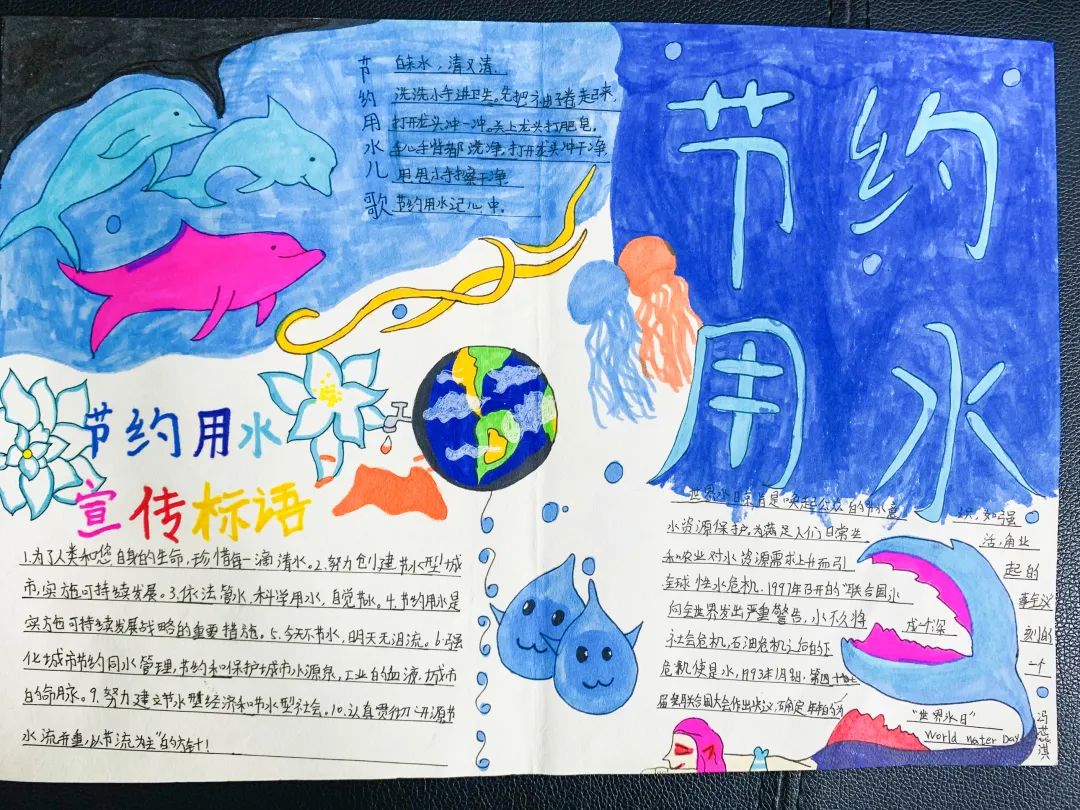 节约用水儿歌
自来水，清又清，
洗洗小手讲卫生。先把袖子卷起来，
打开龙头冲一冲。关上龙头打肥皂，
手心手背都洗净，打开龙头冲干净，
用用小手擦干净
节约用水记心中。
节约
用水
节约用水
宣传标语
1.为了人类和您自身的生命，珍惜每一滴清水。2.努力创建节水型城
市，实施可持续发展。3.依法管水，科学用水，自觉节水。4.节约用水是
实施可持续发展战略的重要措施。5.今天不节水，明天无泪流。6.强
化城市节约同水管理，节约和保护城市水源泉，工业的血液，城市
的命脉。9.努力建立节水型经济和节水型社会。10.认真贯彻“开源节
水流并重，以节流为主”的方针！
世界水日宗旨是唤起公众的节水意识，加强
水资源保护。为满足人们日常生活，商业
和农业对水资源需求上升而引起的
全球性水危机。1997年召开的“联合国水
向全世界发出严重警告，水不久将成一个深刻的
社会危机，石油危机之后的下一个
危机便是水，1993年1月8日，第四十七
届联合国大会作出决议，确定每年的为
“世界水日”
World Water Day
冯蕊淇